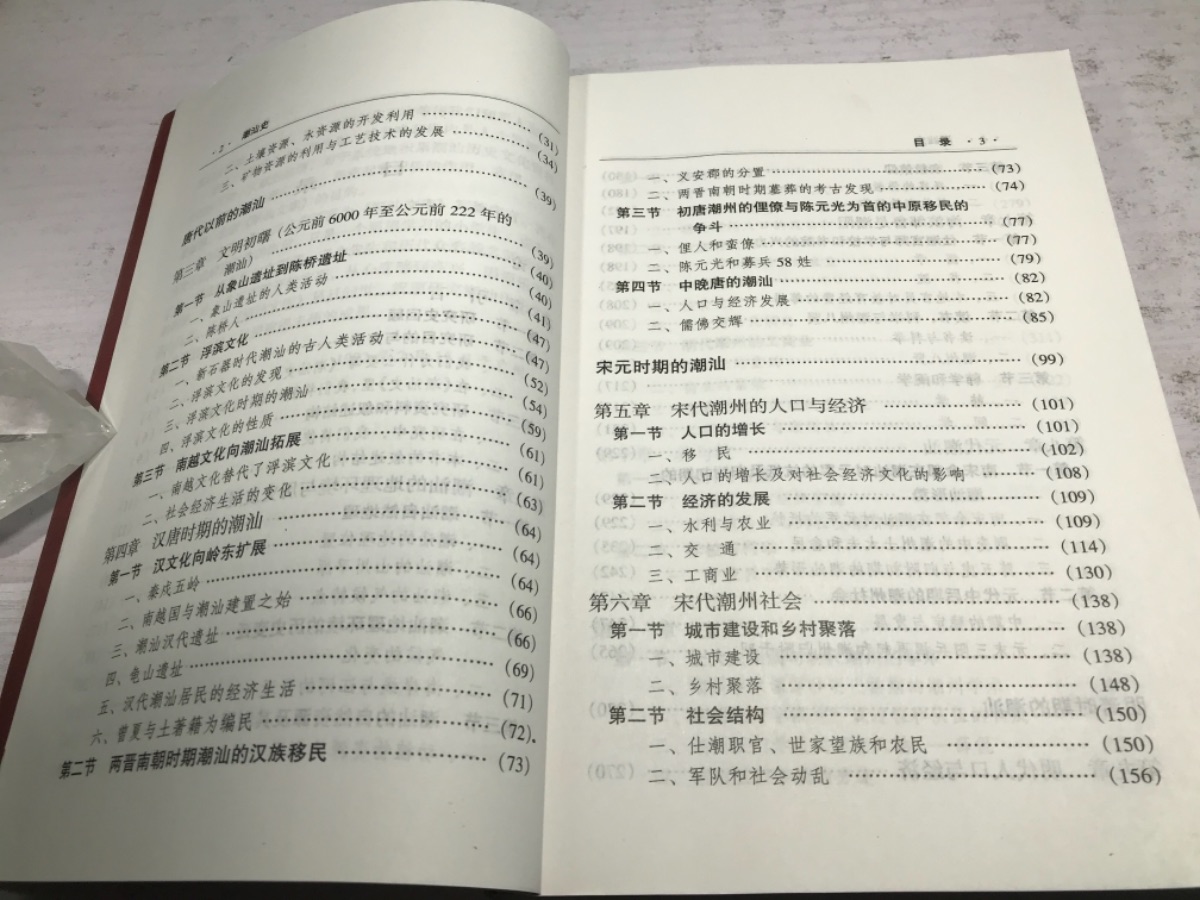 ·2· 潮汕史
二、土壤资源、水资源的开发利用 ……………… (31)
三、矿物资源的利用与工艺技术的发展 ……………… (34)
唐代以前的潮汕 ……………… (39)
第三章 文明初曙(公元前6000年至公元前222年的
潮汕) ……………… (39)
第一节 从象山遗址到陈桥遗址 ……………… (40)
一、象山遗址的人类活动 ……………… (40)
二、陈桥人 ……………… (41)
第二节 浮滨文化 ……………… (47)
一、新石器时代潮汕的古人类活动 ……………… (47)
二、浮滨文化的发现 ……………… (52)
三、浮滨文化时期的潮汕 ……………… (54)
四、浮滨文化的性质 ……………… (59)
第三节 南越文化向潮汕拓展 ……………… (61)
一、南越文化替代了浮滨文化 ……………… (61)
二、社会经济生活的变化 ……………… (63)
第四章 汉唐时期的潮汕 ……………… (64)
第一节 汉文化向岭东扩展 ……………… (64)
一、秦戍五岭 ……………… (64)
二、南越国与潮汕建置之始 ……………… (66)
三、潮汕汉代遗址 ……………… (66)
四、龟山遗址 ……………… (69)
五、汉代潮汕居民的经济生活 ……………… (71)
六、曾夏与土著籍为编民 ……………… (72)
第二节 两晋南朝时期潮汕的汉族移民 ……………… (73)
目 录 ·3·
一、义安郡的分置 ……………… (73)
二、两晋南朝时期墓葬的考古发现 ……………… (74)
第三节 初唐潮州的俚僚与陈元光为首的中原移民的
争斗 ……………… (77)
一、俚人和蛮僚 ……………… (77)
二、陈元光和募兵58姓 ……………… (79)
第四节 中晚唐的潮汕 ……………… (82)
一、人口与经济发展 ……………… (82)
二、儒佛交辉 ……………… (85)
宋元时期的潮汕 ……………… (99)
第五章 宋代潮州的人口与经济 ……………… (101)
第一节 人口的增长 ……………… (101)
一、移 民 ……………… (102)
二、人口的增长及对社会经济文化的影响 ……………… (108)
第二节 经济的发展 ……………… (109)
一、水利与农业 ……………… (109)
二、交 通 ……………… (114)
三、工商业 ……………… (130)
第六章 宋代潮州社会 ……………… (138)
第一节 城市建设和乡村聚落 ……………… (138)
一、城市建设 ……………… (138)
二、乡村聚落 ……………… (148)
第二节 社会结构 ……………… (150)
一、仕潮职官、世家望族和农民 ……………… (150)
二、军队和社会动乱 ……………… (156)